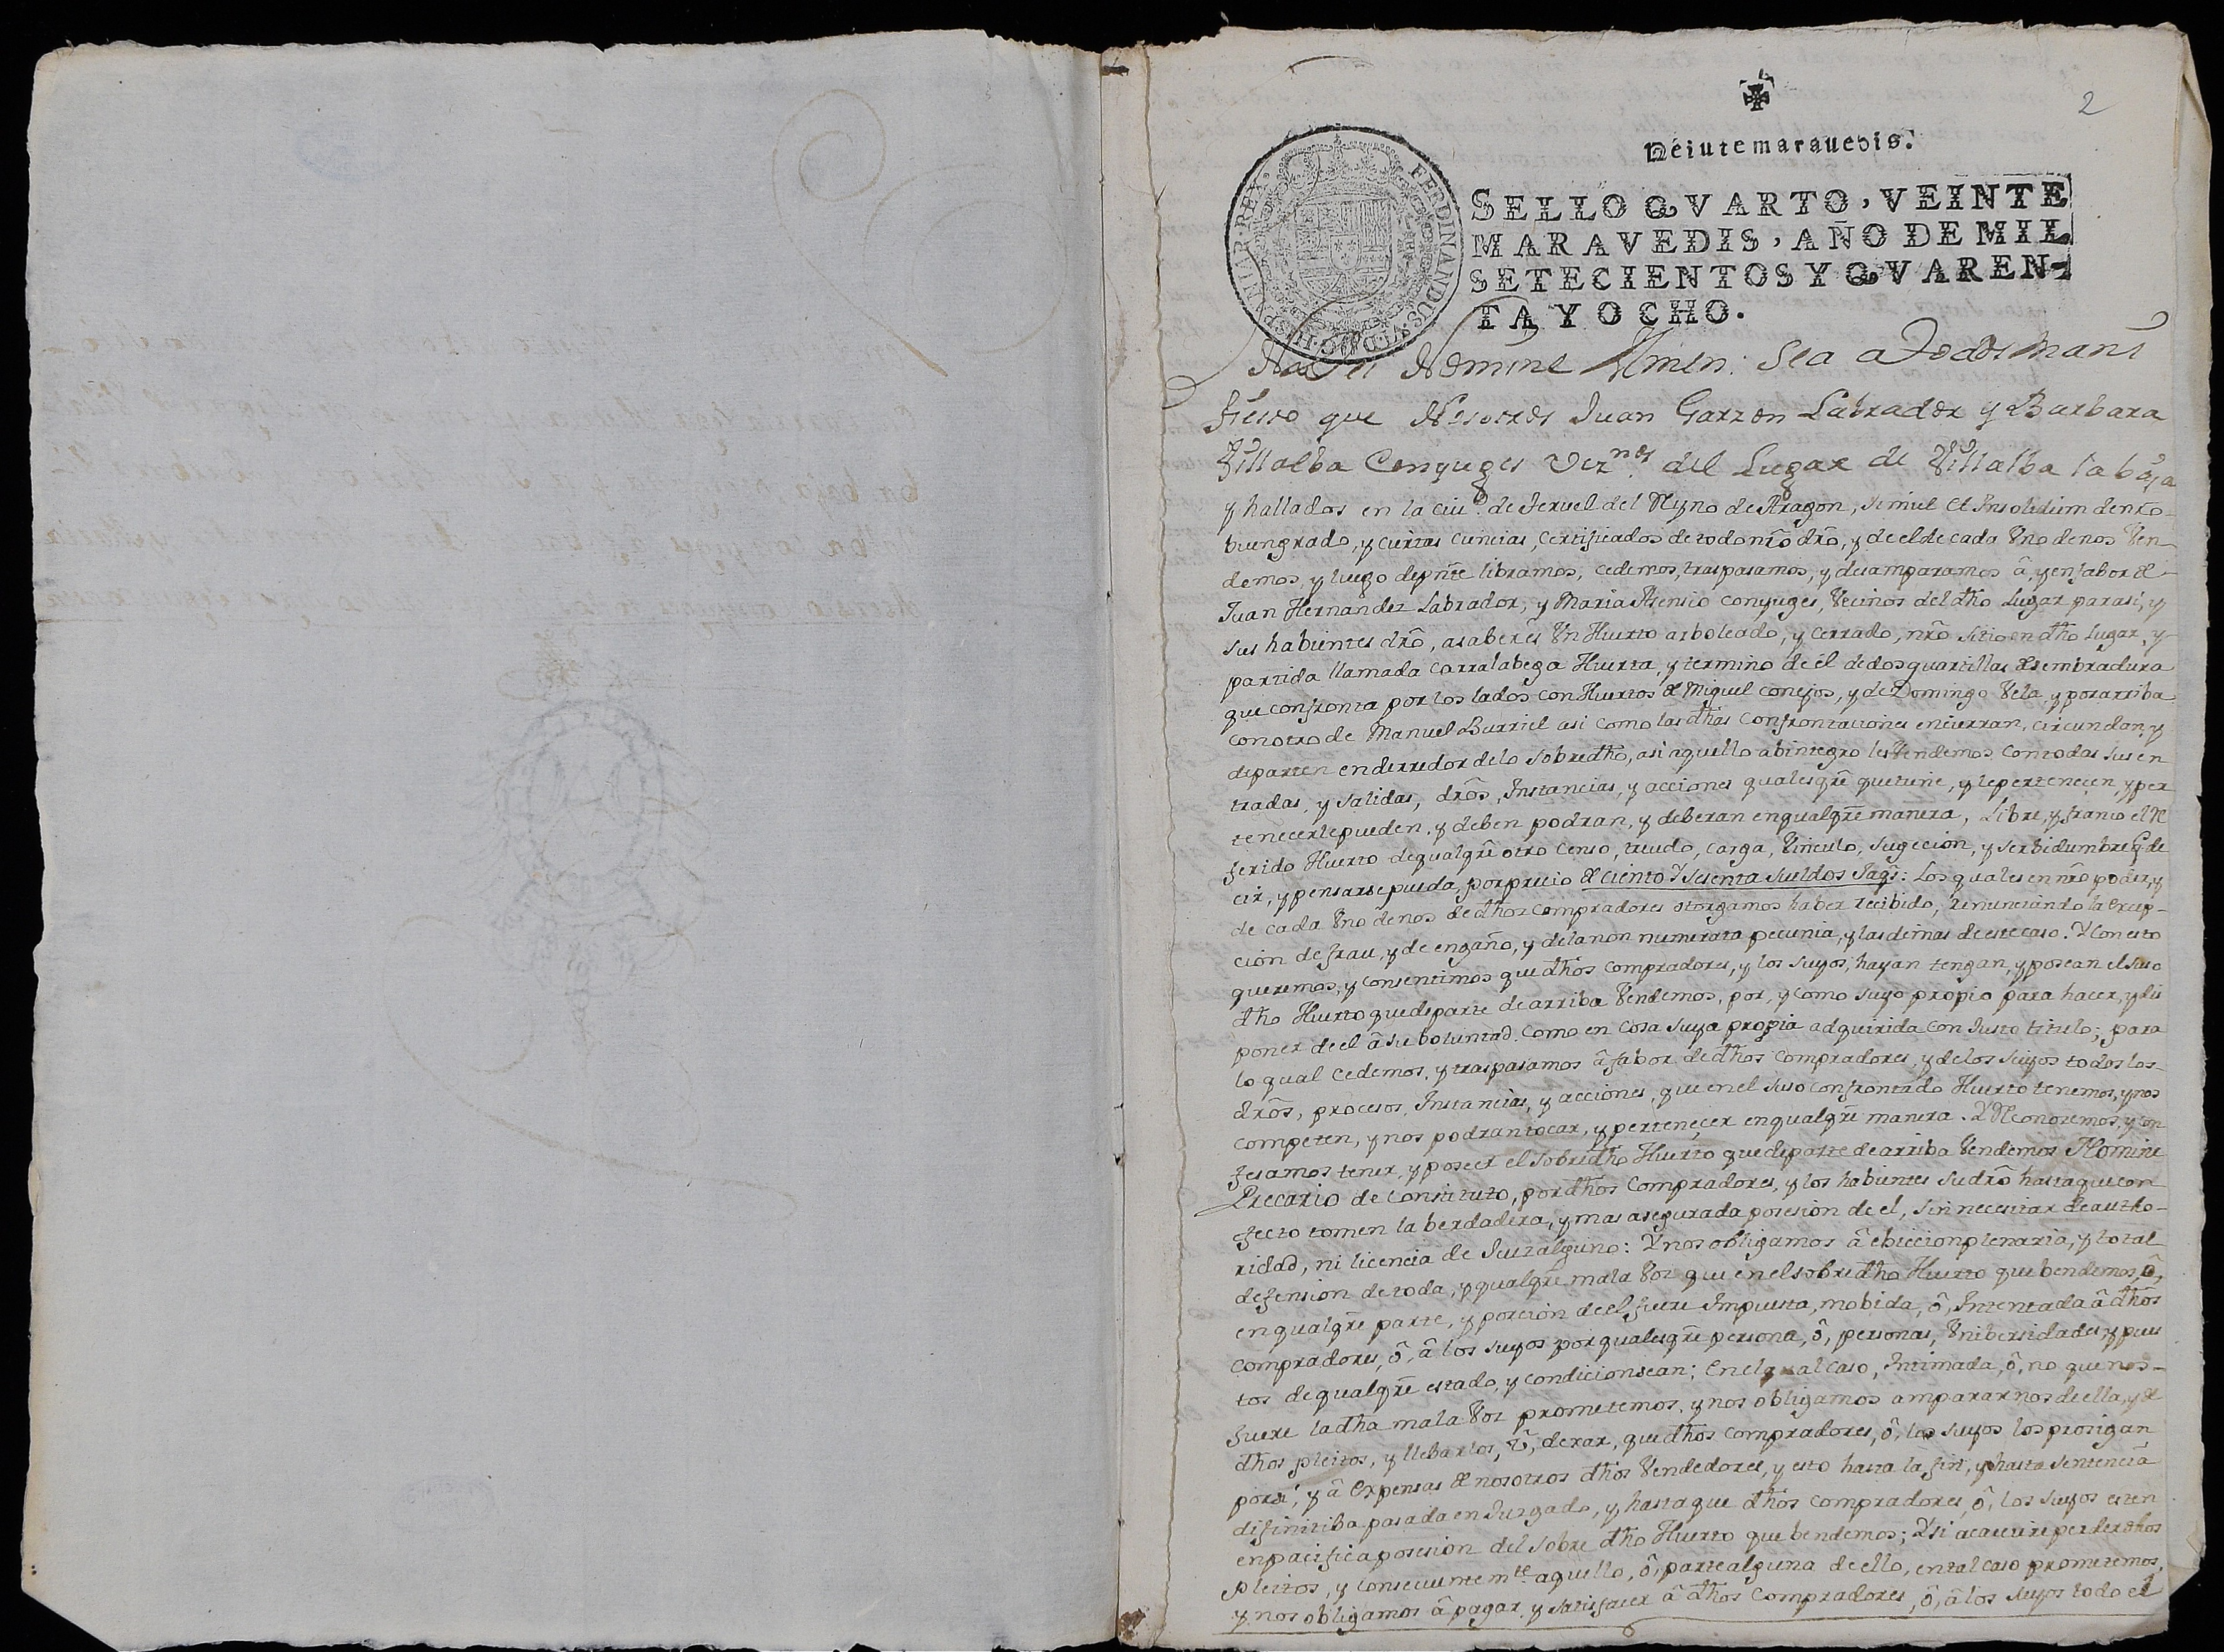 2
Veinte marauedis.
SELLO QVARTO, VEINTE
MARAVEDIS, AÑO DE MIL
SETECIENTOS Y QVAREN-
TA Y OCHO.
FERDINANDUS·VI·D·G·HISPANIAR·REX·
In Dei Nomine Amen: Sea a Todos mani
fiesto que Nosotros Juan Garzon Labrador y Barbara
Villalba Conyuges vez.nos del Lugar de Villalba la baja
y hallados en la ciud. de Teruel del Reyno de Aragon, simul et Insolidum de nro
buen grado, y ciertas ciencias, certificados de todo nro dro, y de el de cada Vno de nos Ven-
demos, y luego de pnte libramos, cedemos, traspasamos, y desamparamos â, y en fabor de
Juan Hernandez Labrador, y Maria Asensio conyuges, Vecinos del dho Lugar para si, y
sus habientes dro, a saber es Vn Huerto arboleado, y cerrado, nro sitio en dho Lugar, y
partida llamada carralabega Huerta, y termino de él de dos quartillas de sembradura
que confronta por los lados con Huertos de Miguel conejos, y de Domingo Vela, y por arriba
con otro de Manuel Burriel asi como las dhas confrontaciones encierran, circundan, y
departen en derredor de lo sobredho, asi aquello ab integro les Vendemos con todas sus en
tradas, y salidas, dros, Instancias, y acciones qualesqre que tiene, y le pertenecen, y per
tenecerle pueden, y deben podran, y deberan en qualqre manera, Libre, y franco el re
ferido Huerto de qualqre otro censo, treudo, carga, Vinculo, sugecion, y serbidumbre q de
cir, y pensarse pueda, por precio de ciento y sesenta sueldos Jaqs: Los quales en nro poder, y
de cada Vno de nos de dhos compradores otorgamos haber recibido, renunciando la excep-
cion de frau, y de engaño, y de la non numerata pecunia, y las demas de este caso. Y con esto
queremos, y consentimos que dhos compradores, y los suyos, hayan tengan, y posean el suso
dho Huerto que de parte de arriba Vendemos, por, y como suyo propio para hacer, y dis
poner de el â su boluntad, como en cosa suya propia adquirida con Justo titulo; para
lo qual cedemos, y traspasamos â fabor de dhos compradores, y de los suyos todos los-
dros, procesos, Instancias, y acciones, que en el suso confrontado Huerto tenemos, y nos
competen, y nos podran tocar, y pertenecer en qualqre manera. Y Reconocemos, y con
fesamos tener, y poseer el sobredho Huerto que de parte de arriba Vendemos Nomine
Precario de Constituto, por dhos compradores, y los habientes su dro hasta que con
efecto tomen la berdadera, y mas asegurada posesion de el, sin necesitar de autho-
ridad, ni licencia de Juez alguno: Y nos obligamos â ebiccion plenaria, y total
defension de toda, y qualqre mala Voz que en el sobredho Huerto que bendemos, ô,
en qualqre parte, y porcion de el fuere Impuesta, mobida, ô, Intentada â dhos
compradores, ô, â los suyos por qualesqre persona, ô, personas, Vnibersidades, y pues
tos de qualqre estado, y condicion sean; En el qual caso, Intimada, ô, no que nos-
fuere la dha mala Voz prometemos, y nos obligamos ampararnos de ella, y de
dhos pleitos, y llebarlos, ô, dexar, que dhos compradores, ô, los suyos los prosigan
por si, y â Expensas de nosotros dhos Vendedores, y esto hasta la fin, y hasta sentencia
difinitiba pasada en Juzgado, y hasta que dhos compradores, ô, los suyos esten
en pacifica posesion del sobre dho Huerto que bendemos; Y si acaeciere perder dhos
pleitos, y consecuentemte aquello, ô, parte alguna de ello, en tal caso prometemos,
y nos obligamos â pagar, y satisfacer â dhos compradores, ô, â los suyos todo el